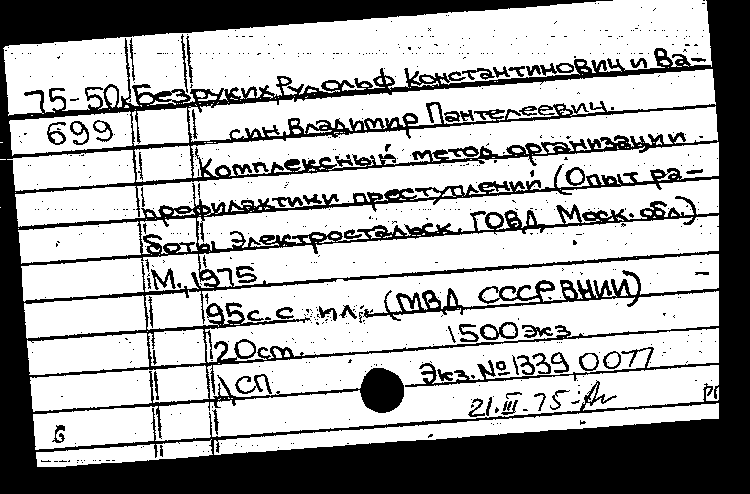 75-50к Безруких, Рудольф Константинович и Ва-
699 син, Владимир Пантелеевич.
Комплексный метод организации
профилактики преступлений (Опыт ра-
боты Электростальск. ГОВД, Моск. обл.)
М., 1975.
95с. с ил. (МВД СССР. ВНИИ)
20 см. 1500 экз.
ДСП. Экз. № 1339, 0077
21.III.75-